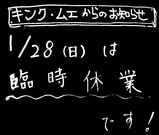 キング・ムエからのお知らせ
1/28(日)は
臨時休業
です!